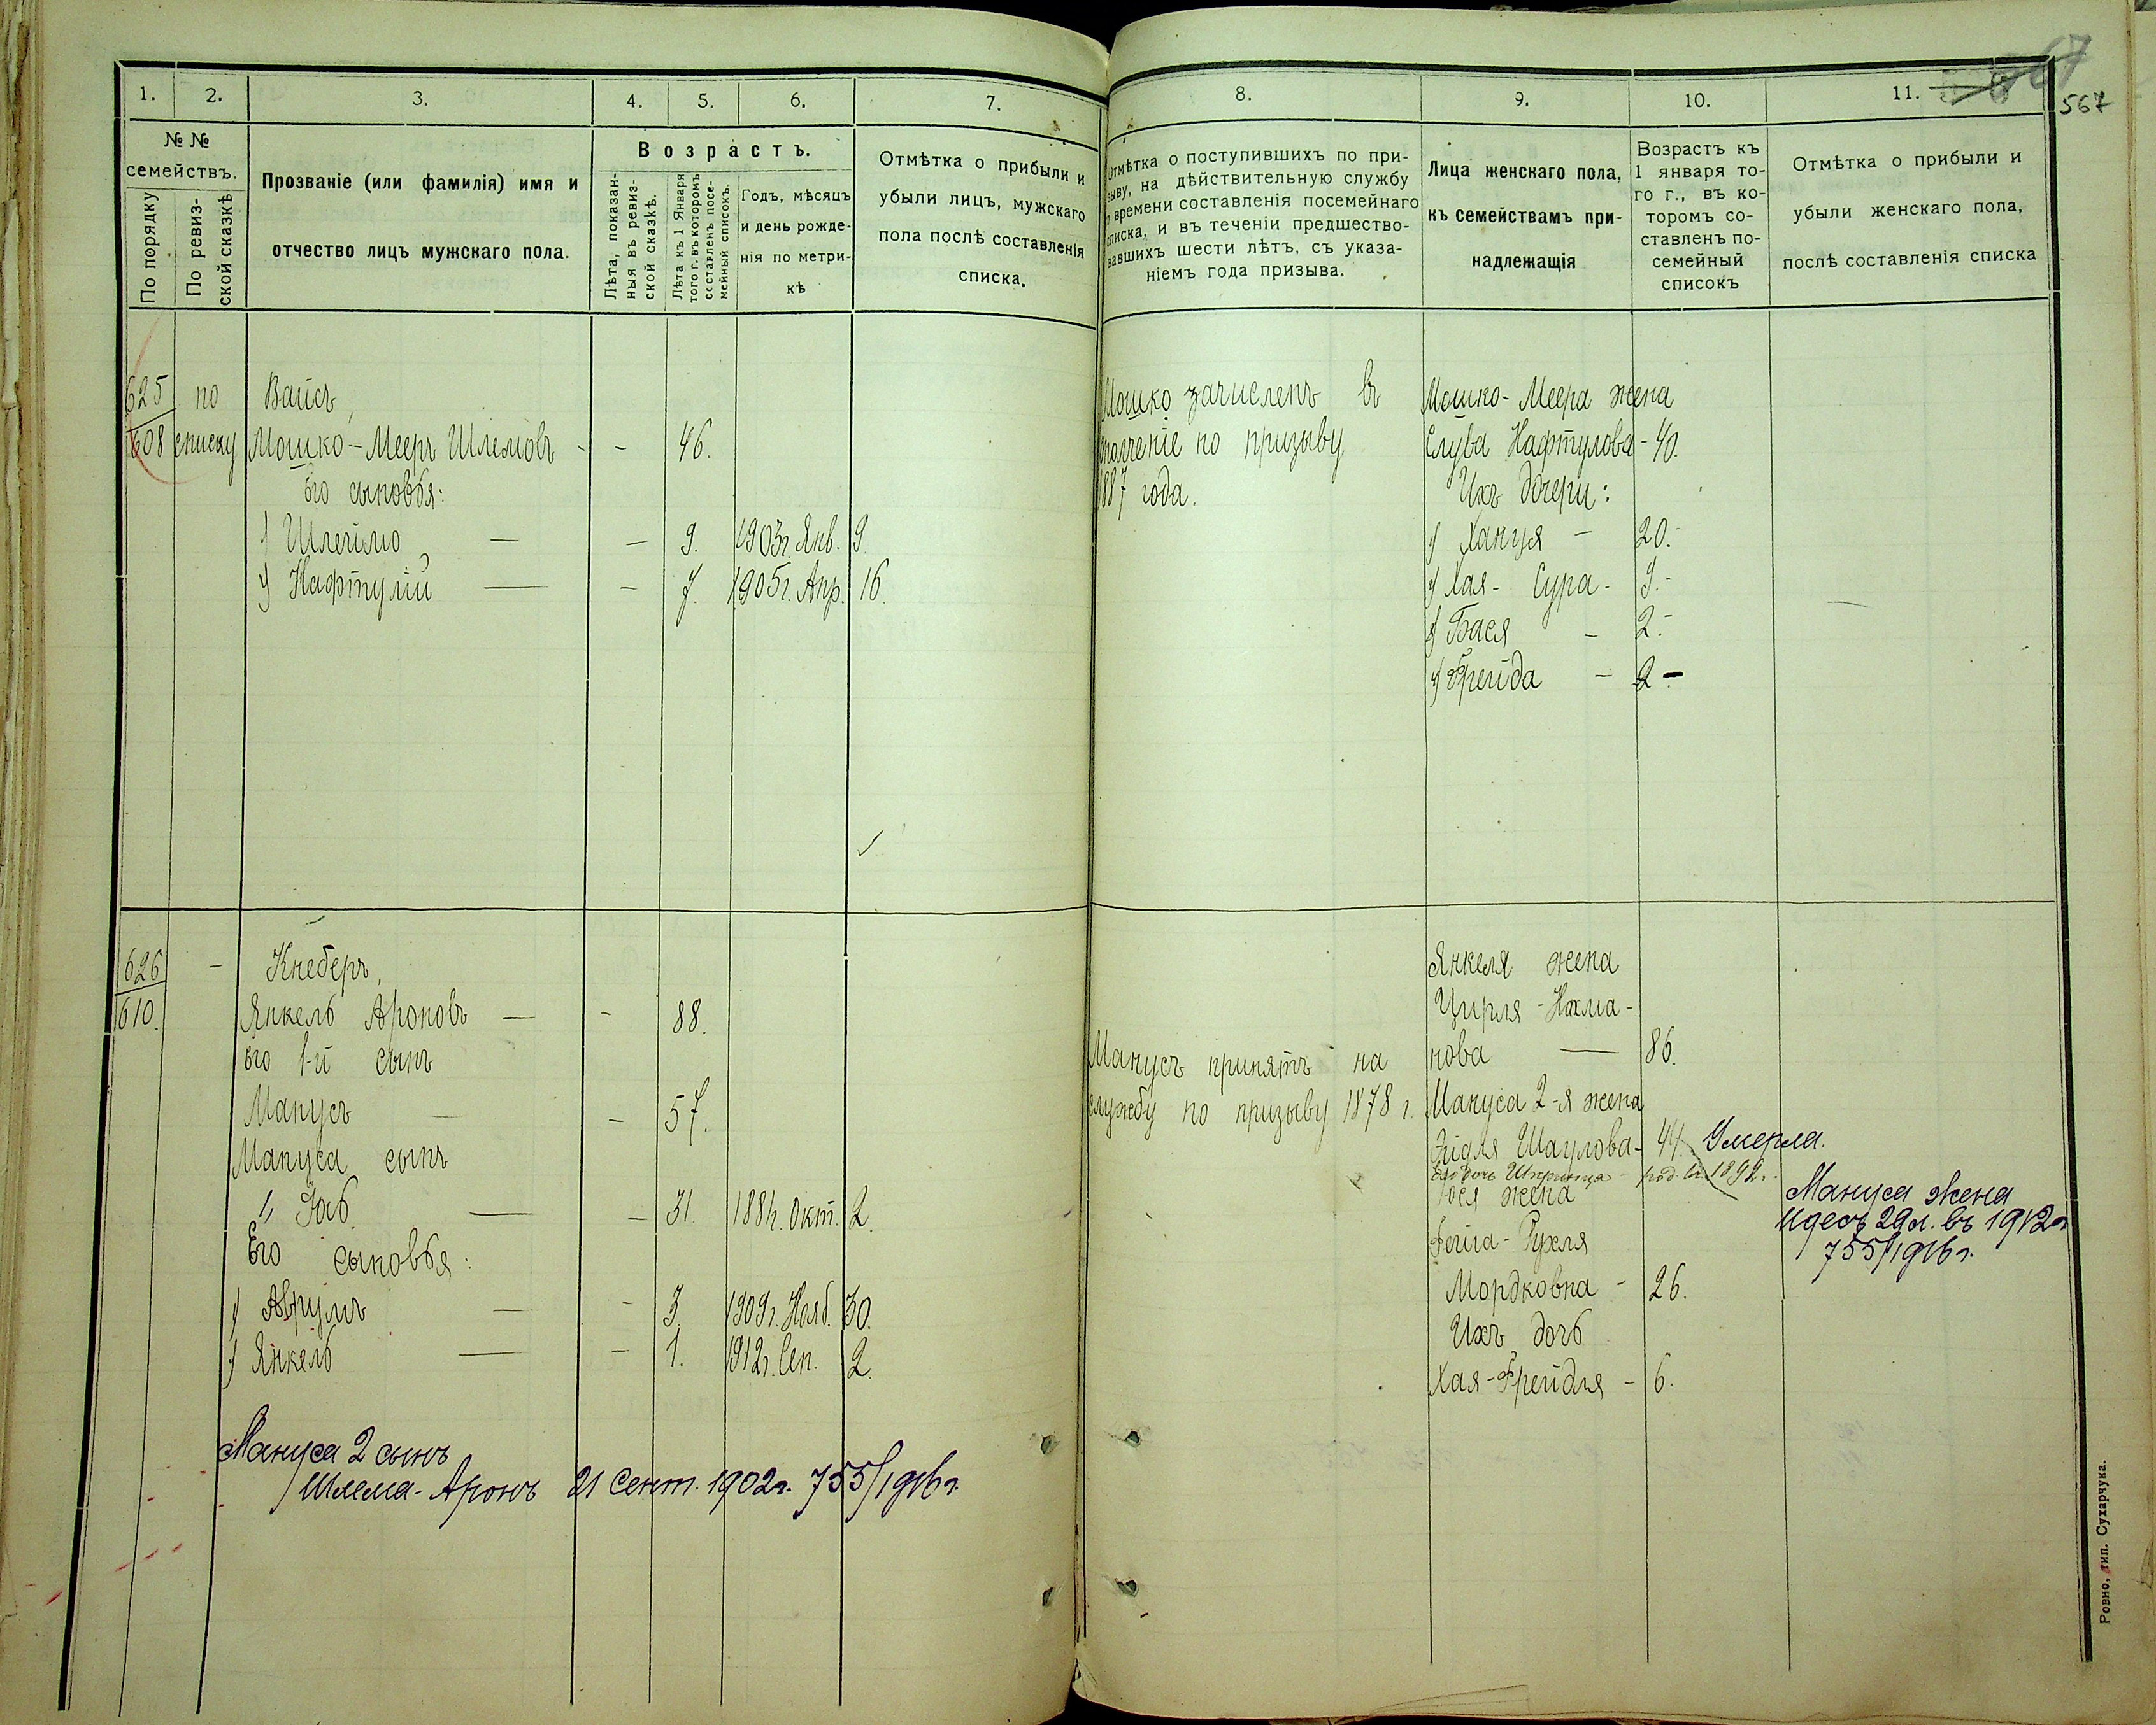 567
567
1. 2. 3. 4. 5. 6. 7.
№ №
семействъ.
По порядку
По ревиз-
ской сказкѣ
Прозваніе (или фамилія) имя и
отчество лицъ мужскаго пола.
Возрастъ.
Лѣта, показан-
ныя въ ревиз-
ской сказкѣ.
Лѣта къ 1 Января
того г. въ которомъ
составленъ посе-
мейный списокъ.
Годъ, мѣсяцъ
и день рожде-
нія по метри-
кѣ
Отмѣтка о прибыли и
убыли лицъ, мужскаго
пола послѣ составленія
списка.
625 по Вайсъ,
608 списку Мошко-Мееръ Шлемовъ - - 46.
Его сыновья:
1) Шлеймо — — 9. 1903г. Янв. 9.
2) Нафтулій — — 7. 1905г. Апр. 16.
626 — Кнеберъ,
610. Янкель Ароновъ — - 88.
Его 1-й сынъ
Манусъ — — 57.
Мануса сынъ
1, Іовъ — — 31. 1881г. Окт. 2.
Его сыновья:
1) Аврумъ — - 3. 1909г. Нояб. 30.
2) Янкель — — 1. 1912г. Сен. 2.
Мануса 2 сынъ
Шлема-Аронъ 21 Сент. 1902г. 755/1916 г.
8. 9. 10. 11.
Отмѣтка о поступившихъ по при-
зыву, на дѣйствительную службу
времени составленія посемейнаго
списка, и въ теченіи предшество-
вавшихъ шести лѣтъ, съ указа-
ніемъ года призыва.
Лица женскаго пола,
къ семействамъ при-
надлежащія
Возрастъ къ
1 января то-
го г., въ ко-
торомъ со-
ставленъ по-
семейный
списокъ
Отмѣтка о прибыли и
убыли женскаго пола,
послѣ составленія списка
Мошко зачисленъ въ
ополченіе по призыву
1887 года.
Мошко-Меера жена
Слува Нафтулова - 40.
Ихъ дочери:
1) Ханця — 20.-
2) Хая-Сура - 9.-
3) Бася - 2.-
4) Фрейда — 2 -
Манусъ принятъ на
службу по призыву 1878 г.
Янкеля жена
Цирля-Нахма-
нова — 86.
Мануса 2-я жена
Эйдля Шаулова - 44. Умерла.
Его дочь Шпринца - род. въ 1892 г.
жена
Фейга-Рухля
Мордковна - 26.
Ихъ дочь
Хая-Фрейдля - 6.
Мануса жена
Идесъ 29 л. въ 1912 г.
755/1916 г.
Ровно, тип. Сухарчука.